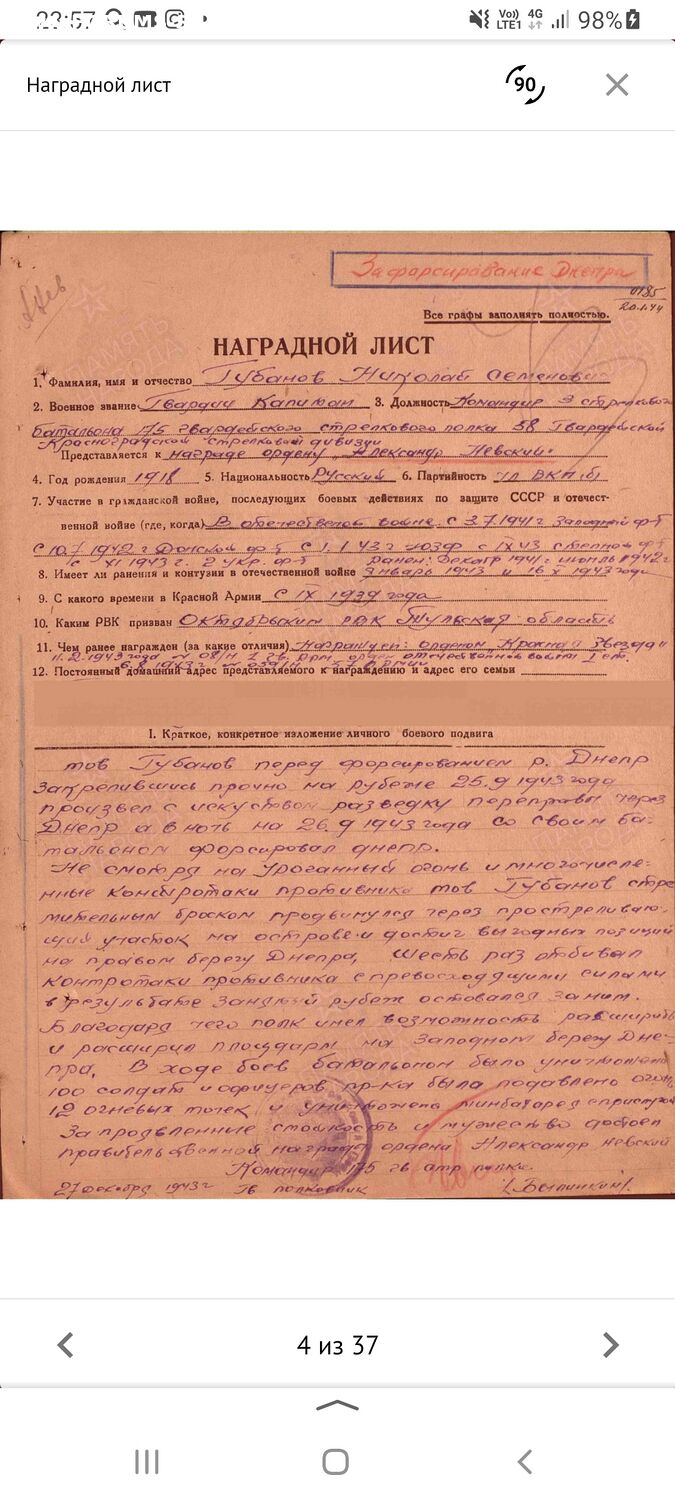 22:57
Vo)) LTE1 4G 98%
Наградной лист
90
За форсирование Днепра
0185
20.1.44
Все графы заполнять полностью.
НАГРАДНОЙ ЛИСТ
1. Фамилия, имя и отчество Губанов Николай Семенович
2. Военное звание Гвардии Капитан 3. Должность Командир 3 стрелкового
батальона 175 гвардейского стрелкового полка 58 Гвардейской
Красноградской стрелковой дивизии
Представляется к награде ордену „Александр Невский"
4. Год рождения 1918 5. Национальность Русский 6. Партийность чл ВКП(б)
7. Участие в гражданской войне, последующих боевых действиях по защите СССР и отечест-
венной войне (где, когда) В отечественой войне с 3.7.1941г Западный ф-т
с 10.7.1942г Донской ф-т с 1.1.43г юозф с IX 43 степной ф-т
с XI 1943г. 2 укр. ф-т
8. Имеет ли ранения и контузии в отечественной войне Ранен: Декабр 1941г июоль 1942г
январь 1943 и 16 X 1943 года
9. С какого времени в Красной Армии с IX 1939 года
10. Каким РВК призван Октябрьским РВК Тульская область
11. Чем ранее награжден (за какие отличия) Награжден: орденом „Красная Звезда"
11.2.1943 года № 08/н 1 гв. арм. орден отечественной войны I ст.
12. Постоянный домашний адрес представляемого к награждению и адрес его семьи
I. Краткое, конкретное изложение личного боевого подвига
тов Губанов перед форсированием р. Днепр
Закрепившись прочно на рубеже 25.9 1943 года
произвел с искуством разведку переправы через
Днепр а в ночь на 26.9 1943 года со своим ба-
тальоном форсировал днепр.
Не смотря на Ураганный огонь и многочисле-
нные контротаки противника тов Губанов стре
мительным броском продвинулся через простреливаю-
щий участок на острове и достиг выгодных позиций
на правом берегу Днепра, Шесть раз отбивал
контротаки противника с превосходящими силами
в результате занятый рубеж оставался за ним.
Благодаря чего полк имел возможность расширить
и расширил плоцдарм на Западном берегу Дне-
пра. В ходе боев батальоном было уничтожено
100 солдат и офицеров пр-ка была подавлено огонь
12 огневых точек и уничтожена минбатарея с прислугой
За проявленные стойкость и мужество достоен
правительственной награды ордена Александр Невский
Командир 175 гв стр полка.
27 декабря 1943г Гв полковник (Былинкин).
4 из 37